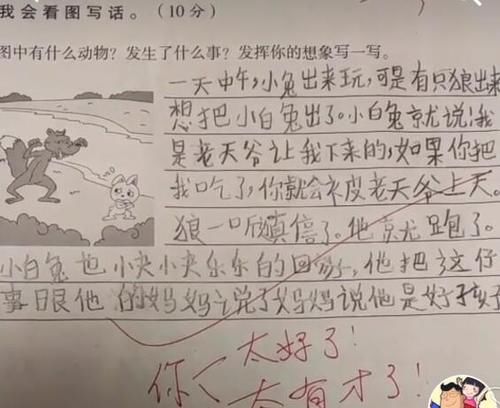 我会看图写话。（10分）
图中有什么动物？发生了什么事？发挥你的想象写一写。
一天中午，小兔出来玩，可是有只狼出来
想把小白兔出了。小白兔就说：我
是老天爷让我下来的，如果你把
我吃了，你就会被老天爷上天。
狼一听真信了。他就跑了。
小白兔也小夹小夹乐乐的回家了，他把这件
事跟他的妈妈说了妈妈说他是好孩子
你太好了！
太有才了！